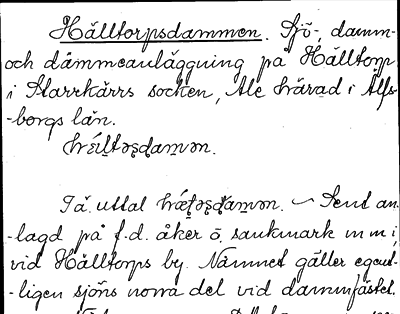 Hålltorpsdammen. Sjö-, damm-
och dämmeanläggning på Hålltorp
i Starrkärrs socken, Ale härad i Älfs-
-borgs län.

Så. uttal Sent an-
-lagd på f.d. åker o. sankmark m m i,
vid Hålltorps by. Namnet gäller egent-
-ligen sjöns norra del vid dammfästet.